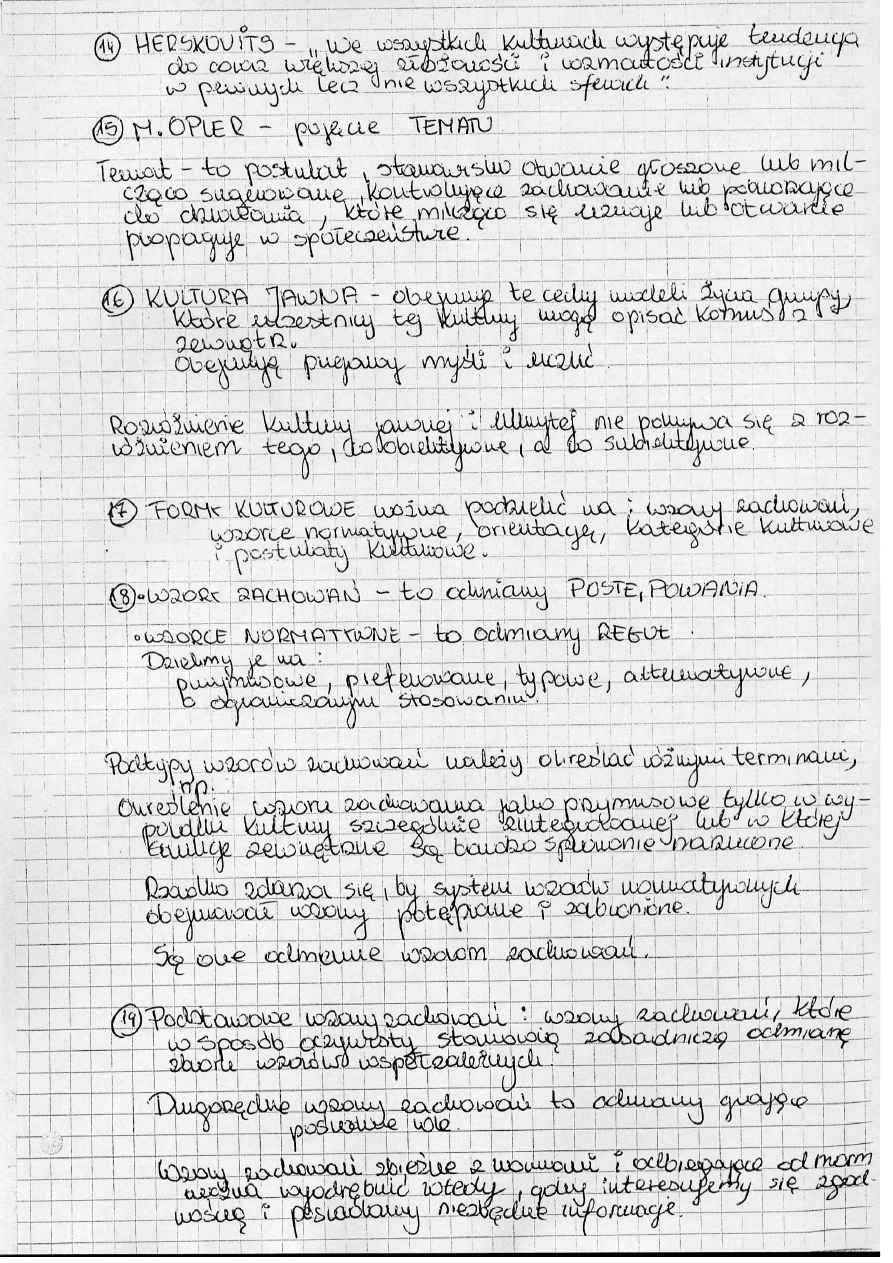 (14) HERSKOVITS – „We wszystkich kulturach występuje tendencja
do coraz większej złożoności i rozmaitości instytucji
w pewnych lecz nie wszystkich sferach".
(15) M. OPLER – pojęcie TEMATU
Temat – to postulat, stanowisko otwarcie głoszone lub mil-
cząco sugerowane, kontrolujące zachowanie lub pobudzające
do działania, które milcząco się uznaje lub otwarcie
propaguje w społeczeństwie.
(16) KULTURA JAWNA – obejmuje te cechy modeli życia grupy,
które uczestnicy tej kultury mogą opisać komuś z
zewnątrz.
Obejmują przejawy myśli i uczuć
Rozróżnienie kultury jawnej i ukrytej nie pokrywa się z roz-
różnieniem tego, co obiektywne, a co subiektywne.
(17) FORMY KULTUROWE można podzielić na: wzory zachowań,
wzorce normatywne, orientacje, kategorie kulturowe
i postulaty kulturowe.
(18) • WZORY ZACHOWAŃ – to odmiany POSTĘPOWANIA.
• WZORCE NORMATYWNE – to odmiany REGUŁ.
Dzielimy je na:
przymusowe, preferowane, typowe, alternatywne,
o ograniczonym stosowaniu.
Podtypy wzorów zachowań należy określać różnymi terminami,
np.
Określenie wzoru zachowania jako przymusowe tylko w wy-
padku kultury szczególnie zintegrowanej lub w której
sankcje zewnętrzne są bardzo sprawnie narzucone.
Rzadko zdarza się, by system wzorów normatywnych
obejmował wzory potępiane i zabronione.
Są one odmienne wzorom zachowań.
(19) Podstawowe wzory zachowań: wzory zachowań, które
w sposób oczywisty stanowią zasadniczą odmianę
zbioru wzorów współzależnych.
Drugorzędne wzory zachowań to odmiany grające
pośrednie role.
Wzory zachowań zbieżne z normami i odbiegające od norm
można wyodrębnić wtedy, gdy interesujemy się zgod-
nością i posiadamy niezbędne informacje.